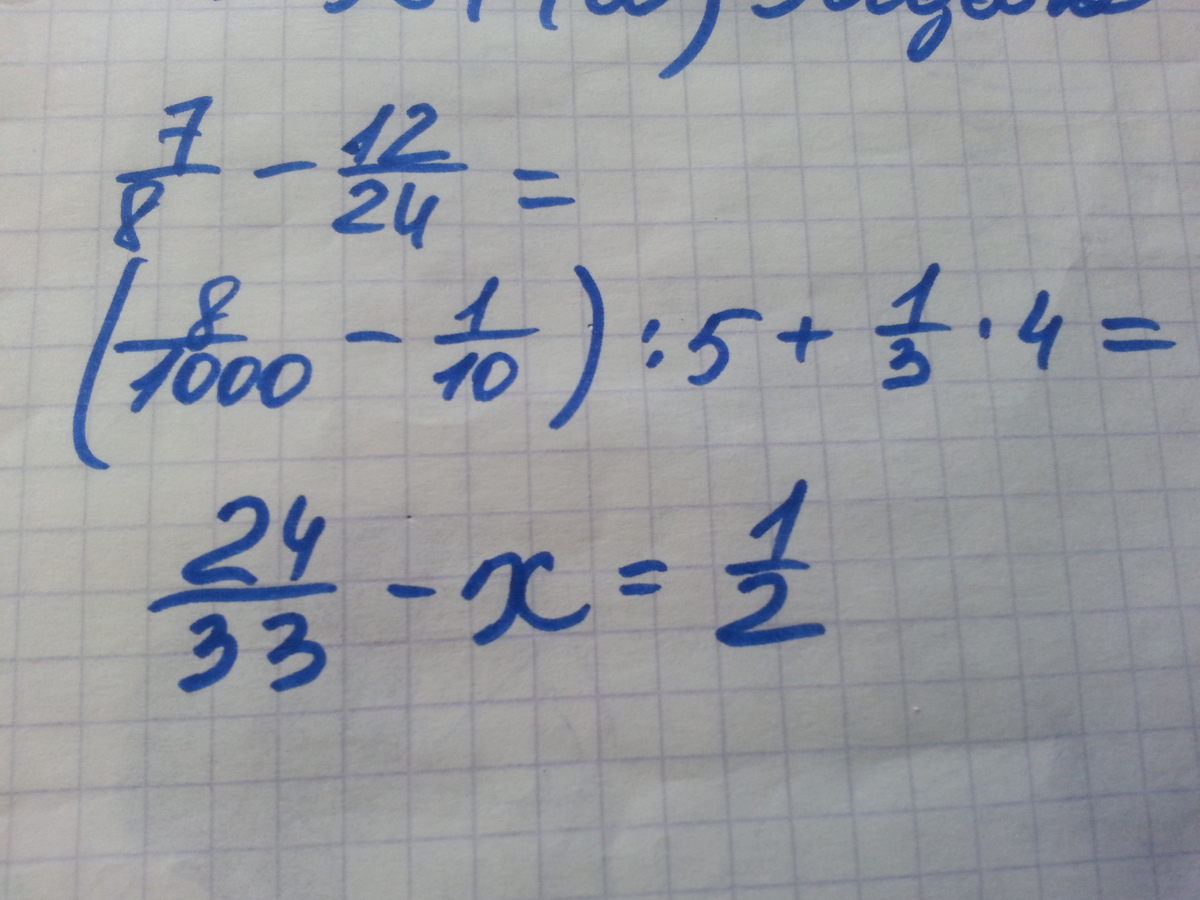 7/8 - 12/24 =
(8/1000 - 1/10) : 5 + 1/3 · 4 =
24/33 - x = 1/2